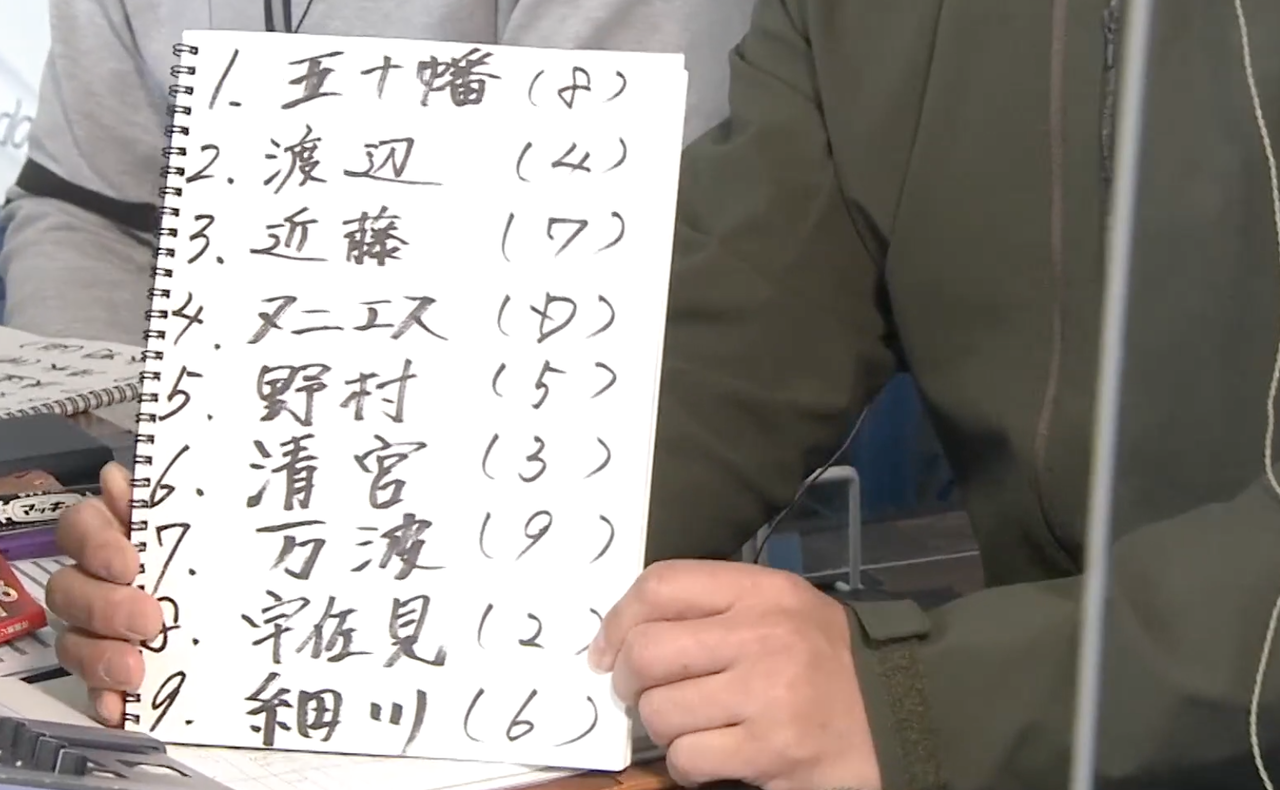 1. 五十幡 (8)
2. 渡辺 (4)
3. 近藤 (7)
4. ヌニエス (D)
5. 野村 (5)
6. 清宮 (3)
7. 万波 (9)
8. 宇佐見 (2)
9. 細川 (6)
マッキー